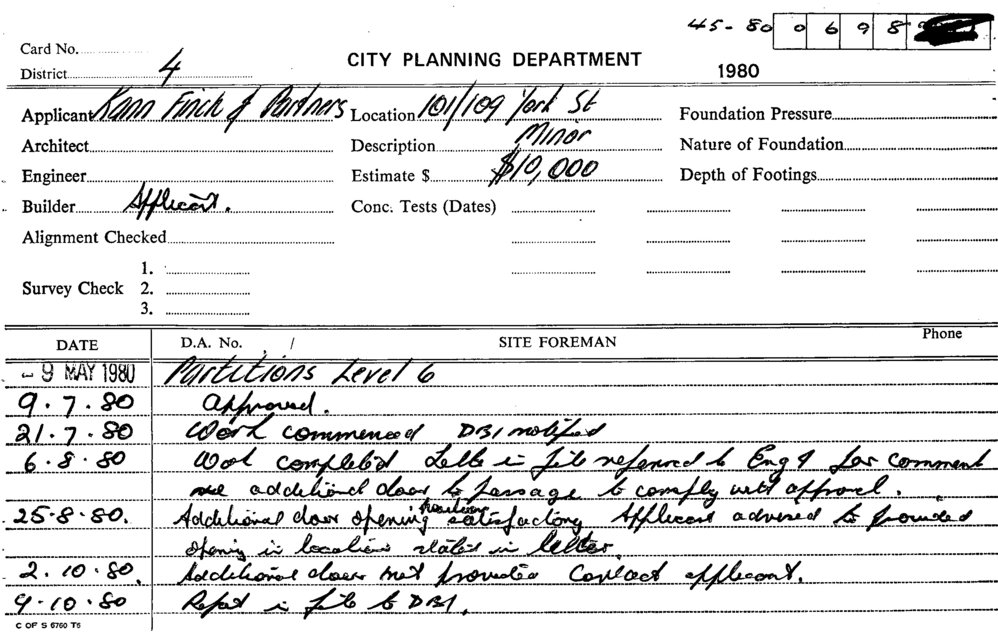 45-80 0 6 9 8
Card No.
District 4
CITY PLANNING DEPARTMENT
1980
Applicant Kann Finch & Partners
Location 101/109 York St
Foundation Pressure
Architect
Description Minor
Nature of Foundation
Engineer
Estimate $ $10,000
Depth of Footings
Builder Applicant.
Conc. Tests (Dates)
Alignment Checked
1.
Survey Check 2.
3.
DATE D.A. No. / SITE FOREMAN Phone
- 9 MAY 1980 Partitions Level 6
9.7.80 Approved.
21.7.80 Work commenced DBI notified
6.8.80 Work completed Letter in file referred to Eng 4 for comment
additional door to passage to comply with approval.
25.8.80. Additional door opening position satisfactory Applicant advised to provided
opening in location stated in letter.
2.10.80. Additional door not provided Contact applicant.
9.10.80 Report in file to DBI.
C OF S 6760 T6